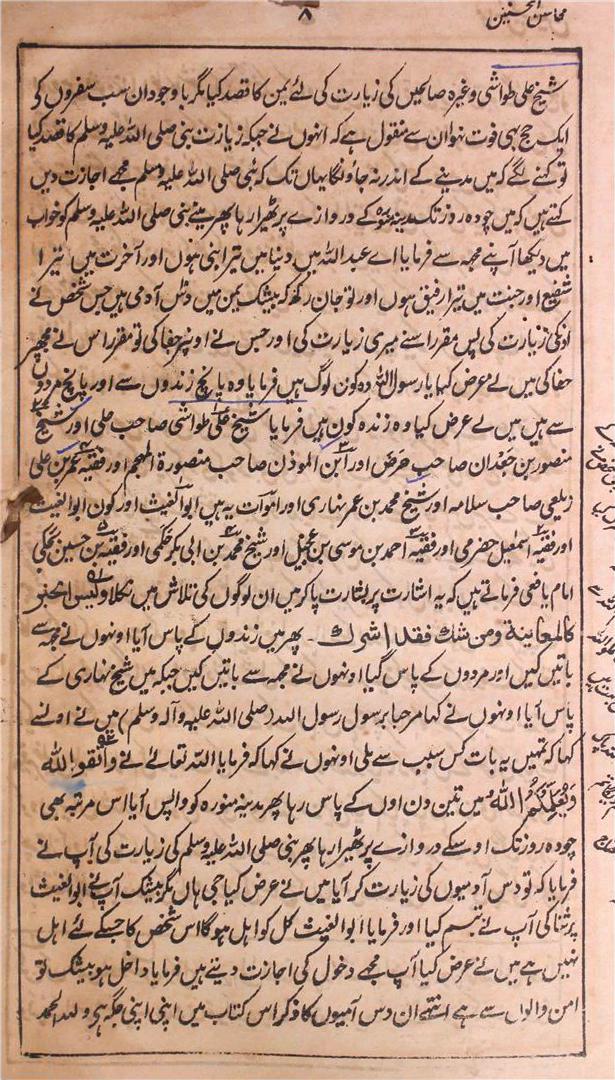 محاسن الحسنین
۸
شیخ علی طواشی وغیرہ صالحین کی زیارت کی لئے یمن کا قصد کیا مگر باوجود ان سب سفروں کے
ایک حج بہی فوت نہوا ان سے منقول ہے کہ انہوں نے جبکہ زیارت بنی صلی اللہ علیہ وسلم کا قصد کیا
تو کہنے لگے کہ میں مدینے کے اندر نہ جاؤنگا یہاں تک کہ نبی صلی اللہ علیہ وسلم مجھے اجازت دیں
کہتے ہیں کہ میں چودہ روز تک مدینہ کے دروازے پر ٹھیرا رہا پھر مینے بنی صلی اللہ علیہ وسلم کو خواب
میں دیکھا آپنے مجہہ سے فرمایا اے عبد اللہ میں دنیا میں تیرا بنی ہوں اور آخرت میں تیرا
شفیع اور جنت میں تیرا رفیق ہوں اور تو جان رکھ کہ بیشک یمن میں دس آدمی ہیں جس شخص نے
اونکی زیارت کی پس مقرر اسنے میری زیارت کی اور جس نے اونپر جفا کی تو مقرر اس نے مجھپر
جفا کی میں نے عرض کہا یا رسول اللہ وہ کون لوگ ہیں فرمایا وہ پانچ زندوں سے اور پانچ مردوں
سے ہیں میں نے عرض کیا وہ زندہ کون ہیں فرمایا شیخ علی طواشی صاحب حلی اور شیخ
منصور بن جعدان صاحب حرض اور ابن الموذن صاحب منصورۃ المہجم اور فقیہ عمر بن علی
زیلعی صاحب سلامہ اور شیخ محمد بن عمر نہاری اور اموات یہ ہیں ابو الغیث اور کون ابو الغیث
اور فقیہ اسمٰعیل حضرمی اور فقیہ احمد بن موسی بن عجیل اور شیخ محمد بن ابی بکر حکمی اور فقیہ بن حسین بجلی
امام یافعی فرماتے ہیں کہ یہ اشارت پر بشارت پا کر میں ان لوگوں کی تلاش میں نکلا ولیس الخبر
کالمعاینۃ ومن شك فقد اشرك ۔ پھر میں زندوں کے پاس آیا اونہوں نے مجہہ سے
باتیں کیں اور مردوں کے پاس گیا اونہوں نے مجہہ سے باتیں کیں جبکہ میں شیخ نہاری کے
پاس آیا اونہوں نے کہا مرحبا برسول رسول اللہ (صلی اللہ علیہ وآلہ وسلم) میں نے اونسے
کہا کہ تمہیں یہ بات کس سبب سے ملی اونہوں نے کہا کہ فرمایا اللہ تعالےٰ نے واتقوا الله
وَیُعَلِّمُکُمُ اللهُ میں تین دن اون کے پاس رہا پھر مدینہ منورہ کو واپس آیا اس مرتبہ بھی
چودہ روز تک اوسکے دروازے پر ٹھیرا رہا پھر بنی صلی اللہ علیہ وسلم کی زیارت کی آپ نے
فرمایا کہ تو دس آدمیوں کی زیارت کر آیا میں نے عرض کیا جی ہاں مگر بیشک آپنے ابو الغیث
پر ثنا کی آپ نے تبسم کیا اور فرمایا ابو الغیث کل کو اہل ہوگا اس شخص کا جسکے لئے اہل
نہیں ہے میں نے عرض کیا آپ مجھے دخول کی اجازت دیتے ہیں فرمایا داخل ہو بیشک تو
امن والوں سے ہے انتہے ان دس آدمیوں کا ذکر اس کتاب میں اپنی اپنی جگہ ہی وللہ الحمد